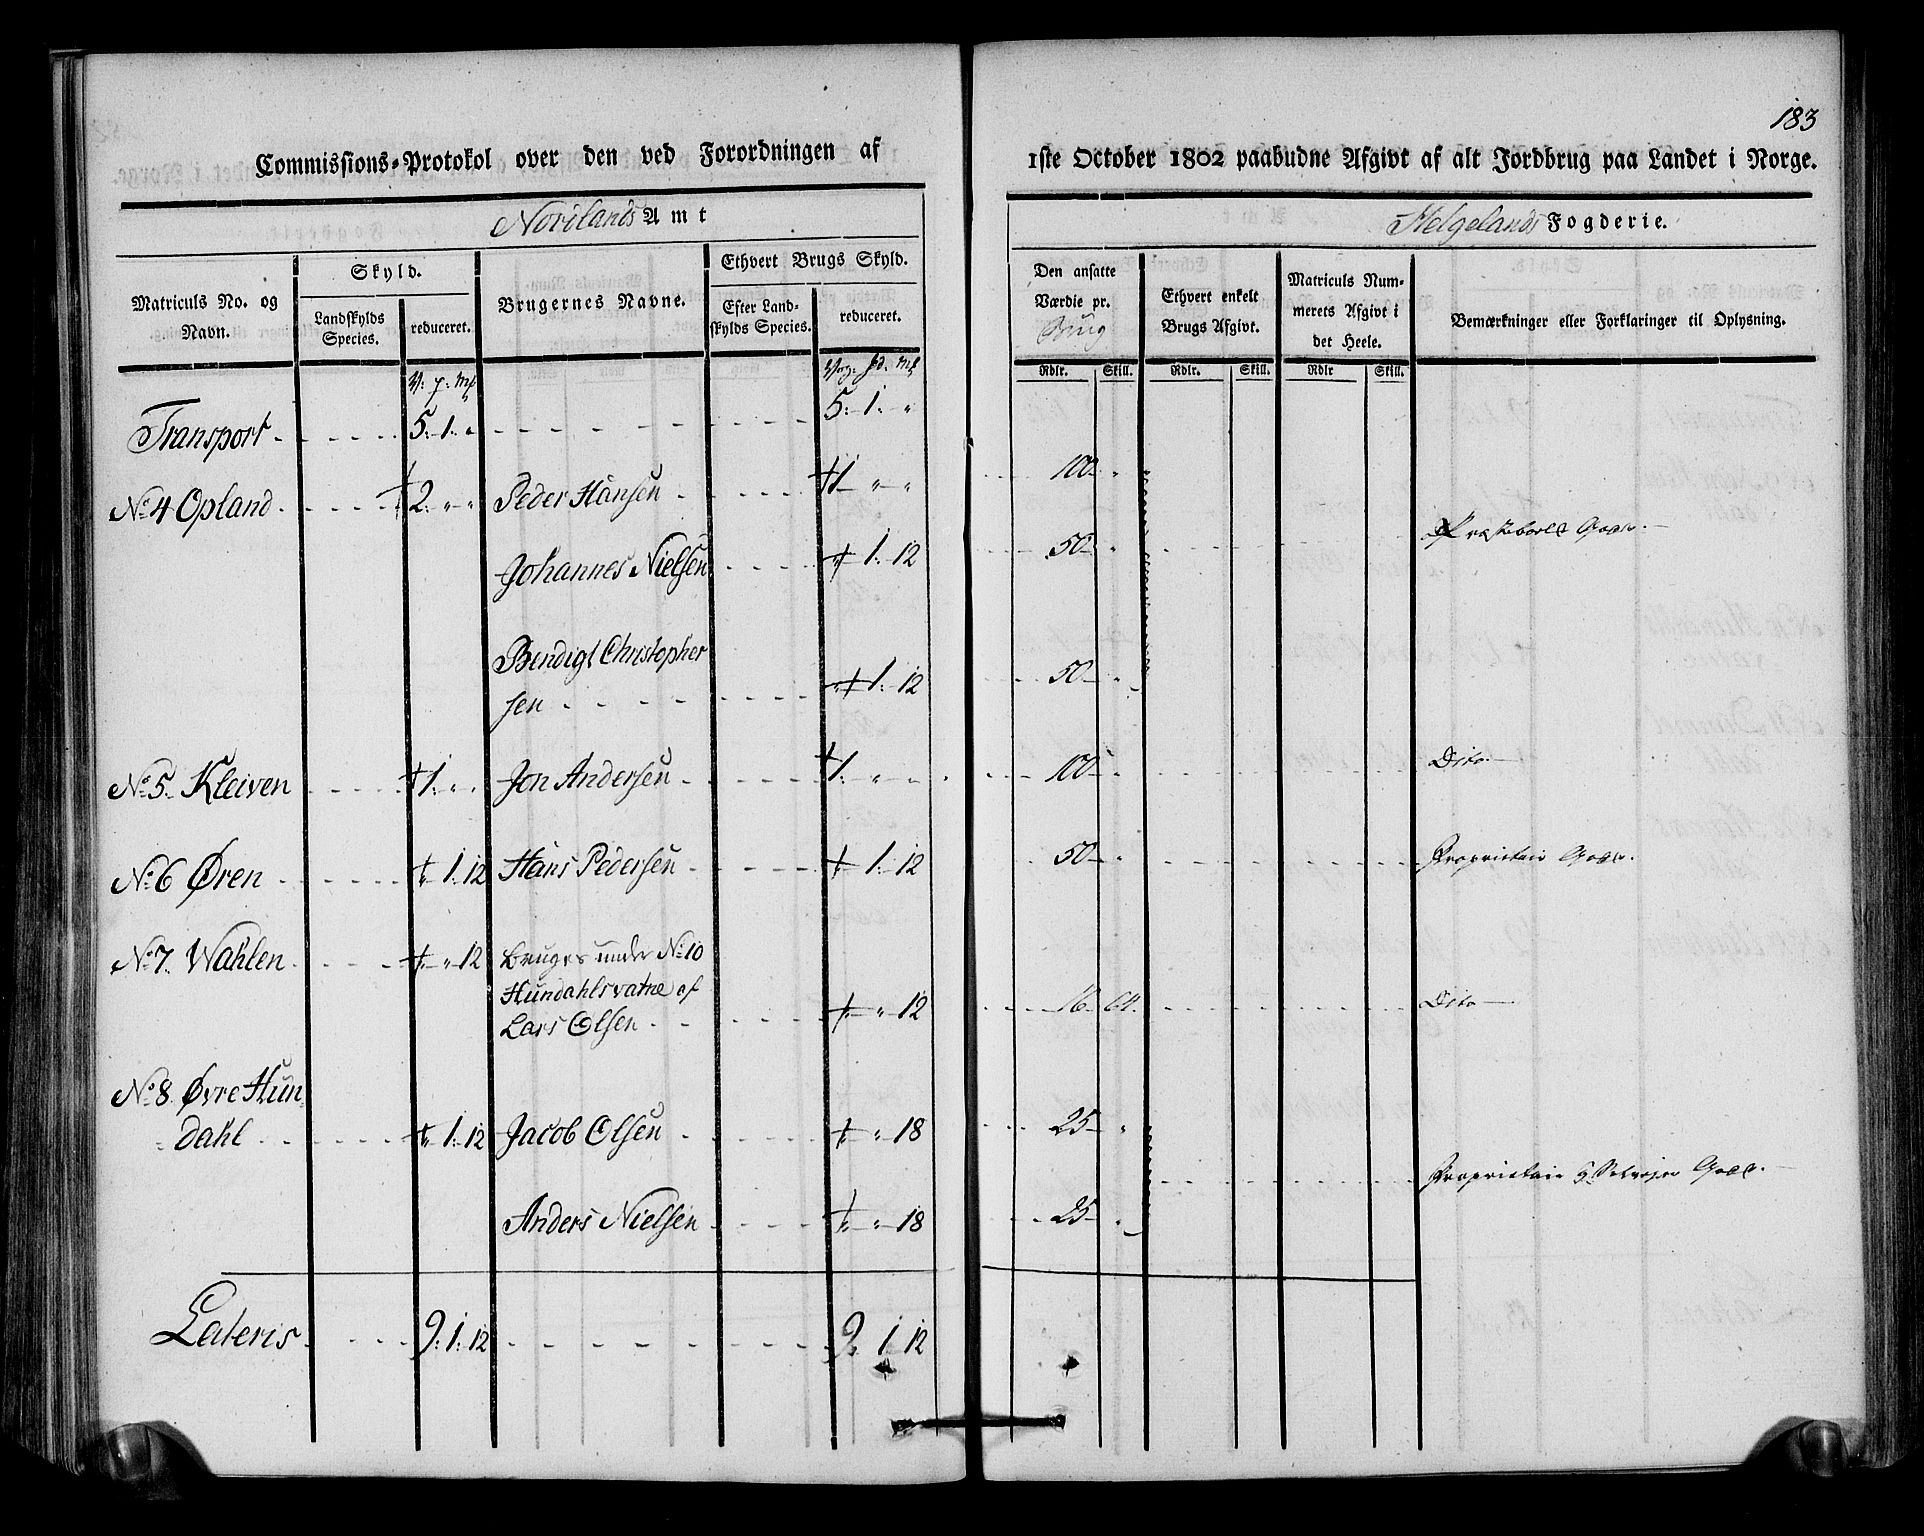 183
Commissions-Protokol over den ved Forordningen af 1ste October 1802 paabudne Afgivt af alt Jordbrug paa Landet i Norge.
Nordlands Amt Helgelands Fogderie.
Matriculs No. og Navn.
Skyld.
Landskylds Species.
reduceret.
Brugernes Navne.
Ethvert Brugs Skyld.
Efter Landskylds Species.
reduceret.
Den ansatte Værdie pr. Brug
Ethvert enkelt Brugs Afgivt.
Matriculs Nummerets Afgivt i det Heele.
Bemærkninger eller Forklaringer til Oplysning.
Rdlr. Skill. Rdlr. Skill. Rdlr Skill.
V: p: mk Vog: pd. mk
Transport 5: 1: " 5: 1: "
No 4 Opland 2: " " Peder Hansen 1 " " 100 "
Johannes Nielsen 1: 12 50 " Præsteboels Gods.
Bendigt Christopher
sen 1: 12 50 "
No 5. Kleiven 1: " " Jon Andersen 1: " " 100 " Dito
No 6 Øren 1: 12 Hans Pedersen 1: 12 50 " Proprietair Gods.
No 7. Wahlen " 12 bruges under No 10
Hundahlsvatne af
Lars Olsen " 12 16 64 Dito
No 8. Øvre Hun-
dahl 1: 12 Jacob Olsen " 18 25 "
Proprietair Gods.
Anders Nielsen " 18 25 "
Lateris 9: 1: 12 9: 1 12